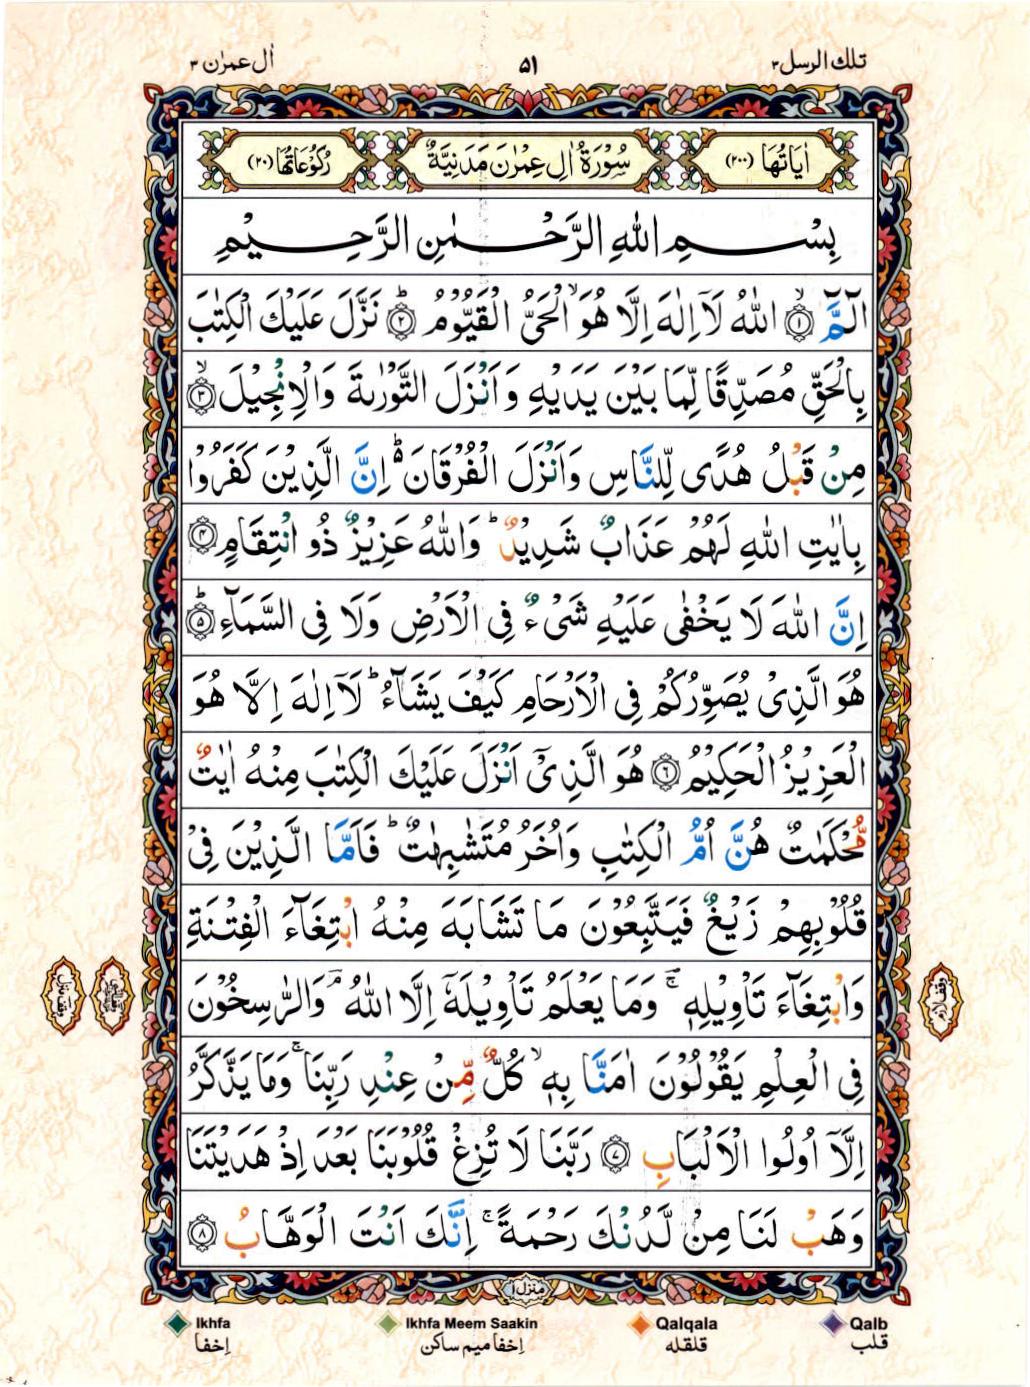 تلك الرسل ٣
۵۱
اٰل عمرٰن ٣
اٰيَاتُهَا (٢٠٠)
سُوْرَةُ اٰلِ عِمْرٰنَ مَدَنِيَّةٌ
رُكُوْعَاتُهَا (٢٠)
بِسْمِ اللّٰهِ الرَّحْمٰنِ الرَّحِيْمِ
الٓمَّٓ ۙ﴿١﴾ اللّٰهُ لَاۤ اِلٰهَ اِلَّا هُوَ ۙ الْحَىُّ الْقَيُّوْمُ ؕ﴿٢﴾ نَزَّلَ عَلَيْكَ الْكِتٰبَ
بِالْحَقِّ مُصَدِّقًا لِّمَا بَيْنَ يَدَيْهِ وَاَنْزَلَ التَّوْرٰىةَ وَالْاِنْجِيْلَ ۙ﴿٣﴾
مِنْ قَبْلُ هُدًى لِّلنَّاسِ وَاَنْزَلَ الْفُرْقَانَ ؕ۬ اِنَّ الَّذِيْنَ كَفَرُوْا
بِاٰيٰتِ اللّٰهِ لَهُمْ عَذَابٌ شَدِيْدٌ ؕ وَاللّٰهُ عَزِيْزٌ ذُو انْتِقَامٍ ﴿۴﴾
اِنَّ اللّٰهَ لَا يَخْفٰى عَلَيْهِ شَىْءٌ فِى الْاَرْضِ وَلَا فِى السَّمَآءِ ؕ﴿۵﴾
هُوَ الَّذِىْ يُصَوِّرُكُمْ فِى الْاَرْحَامِ كَيْفَ يَشَآءُ ؕ لَاۤ اِلٰهَ اِلَّا هُوَ
الْعَزِيْزُ الْحَكِيْمُ ﴿۶﴾ هُوَ الَّذِىْۤ اَنْزَلَ عَلَيْكَ الْكِتٰبَ مِنْهُ اٰيٰتٌ
مُّحْكَمٰتٌ هُنَّ اُمُّ الْكِتٰبِ وَاُخَرُ مُتَشٰبِهٰتٌ ؕ فَاَمَّا الَّذِيْنَ فِىْ
قُلُوْبِهِمْ زَيْغٌ فَيَتَّبِعُوْنَ مَا تَشَابَهَ مِنْهُ ابْتِغَآءَ الْفِتْنَةِ
وَابْتِغَآءَ تَاْوِيْلِهٖ ۚ وَمَا يَعْلَمُ تَاْوِيْلَهٗۤ اِلَّا اللّٰهُ ۘ وَالرّٰسِخُوْنَ
وقف لازم
فِى الْعِلْمِ يَقُوْلُوْنَ اٰمَنَّا بِهٖ ۙ كُلٌّ مِّنْ عِنْدِ رَبِّنَا ۚ وَمَا يَذَّكَّرُ
اِلَّاۤ اُولُوا الْاَلْبَابِ ﴿۷﴾ رَبَّنَا لَا تُزِغْ قُلُوْبَنَا بَعْدَ اِذْ هَدَيْتَنَا
وَهَبْ لَنَا مِنْ لَّدُنْكَ رَحْمَةً ۚ اِنَّكَ اَنْتَ الْوَهَّابُ ﴿۸﴾
منزل ١
Ikhfa
Ikhfa Meem Saakin
Qalqala
Qalb
اِخفا
اِخفا میم ساکن
قلقله
قلب